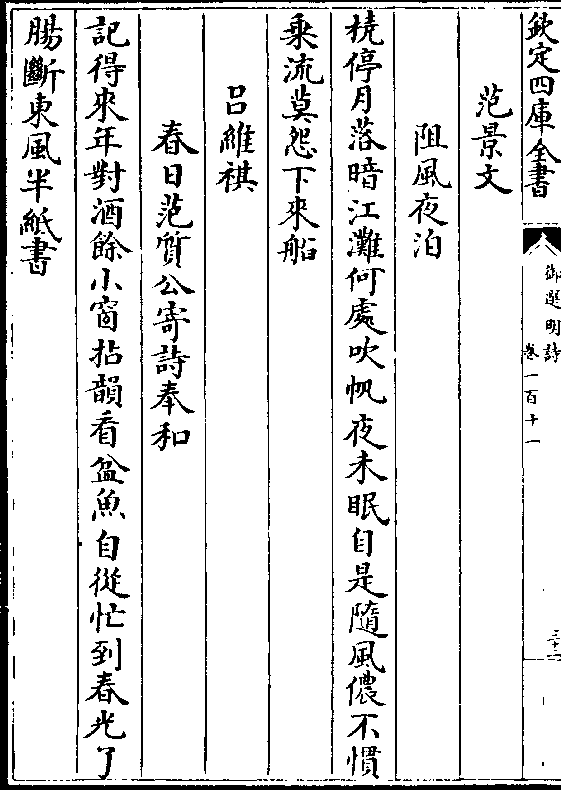 欽定四庫全書
御選明詩
卷一百十一
三十二
范景文
阻風夜泊
橈停月落暗江灘何處吹帆夜未眠自是隨風儂不慣
乘流莫怨下來船
呂維祺
春日范質公寄詩奉和
記得來年對酒餘小窗拈韻看盆魚自從忙到春光了
腸斷東風半紙書